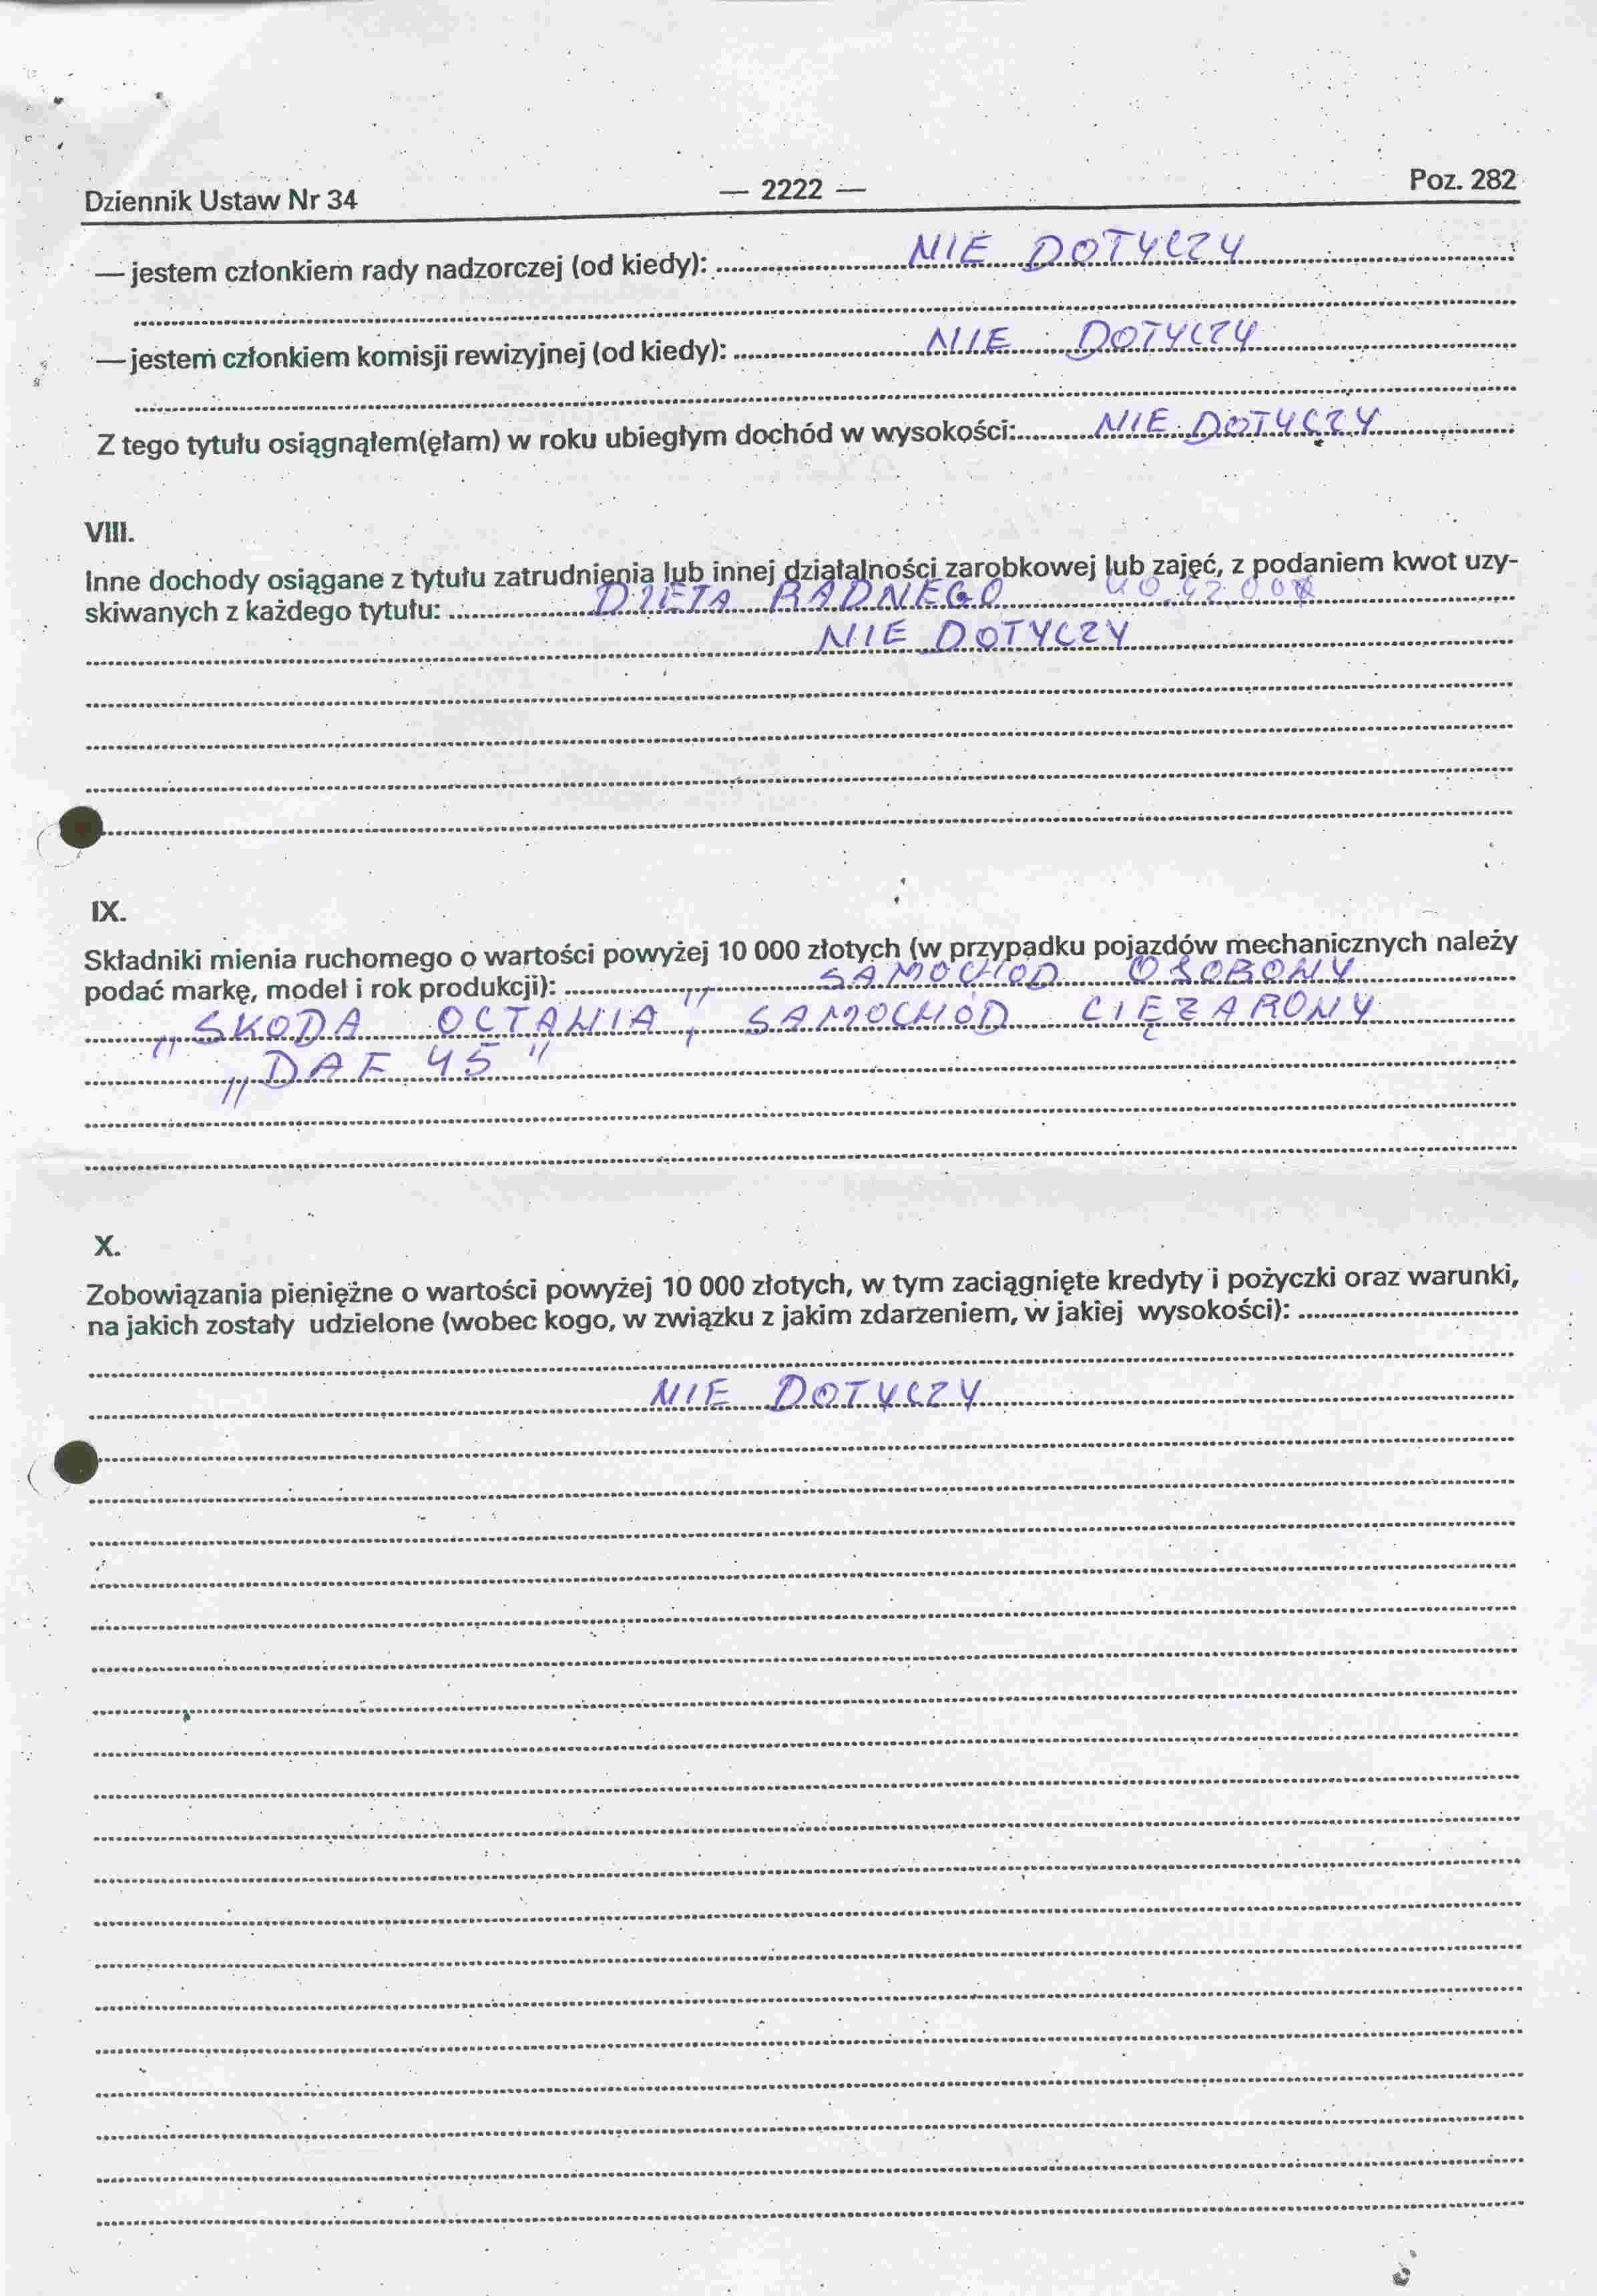 Dziennik Ustaw Nr 34 — 2222 — Poz. 282
— jestem członkiem rady nadzorczej (od kiedy): NIE DOTYCZY
— jestem członkiem komisji rewizyjnej (od kiedy): NIE DOTYCZY
Z tego tytułu osiągnąłem(ęłam) w roku ubiegłym dochód w wysokości: NIE DOTYCZY
VIII.
Inne dochody osiągane z tytułu zatrudnienia lub innej działalności zarobkowej lub zajęć, z podaniem kwot uzy-
skiwanych z każdego tytułu: DIETA RADNEGO
NIE DOTYCZY
IX.
Składniki mienia ruchomego o wartości powyżej 10 000 złotych (w przypadku pojazdów mechanicznych należy
podać markę, model i rok produkcji): SAMOCHOD OSOBOWY
„SKODA OCTAWIA", SAMOCHÓD CIĘŻAROWY
„DAF 45"
X.
Zobowiązania pieniężne o wartości powyżej 10 000 złotych, w tym zaciągnięte kredyty i pożyczki oraz warunki,
na jakich zostały udzielone (wobec kogo, w związku z jakim zdarzeniem, w jakiej wysokości):
NIE DOTYCZY